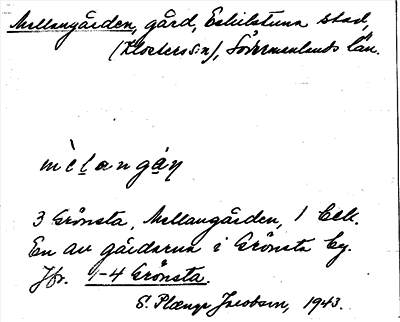 Mellangården, gård, Eskilstuna stad,
(Klosters sn), Södermanlands län.
mèḷangạ̊ɳ
3 Grönsta, Mellangården, 1 bck.
En av gårdarna i Grönsta by.
Jfr. 1-4 Grönsta.
S. Plænge Jacobson, 1943.